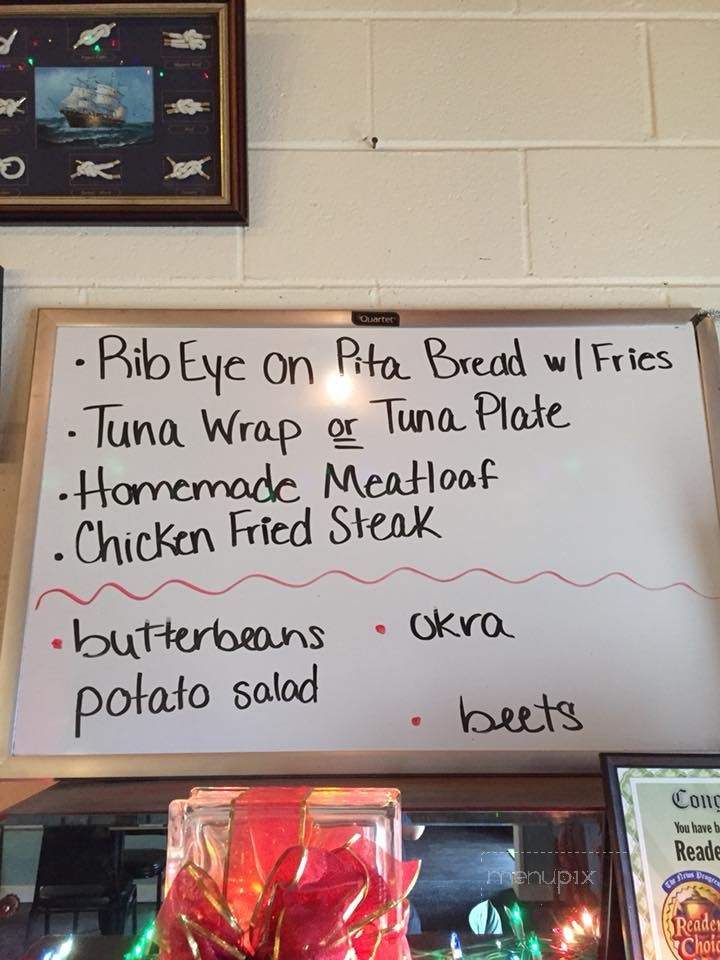 Quartet
· Rib Eye on Pita Bread w/ Fries
· Tuna Wrap or Tuna Plate
· Homemade Meatloaf
· Chicken Fried Steak
· butterbeans
potato salad
· okra
· beets
menupix
Cong
You have b
Reade
The News Progre
Reader
Choic